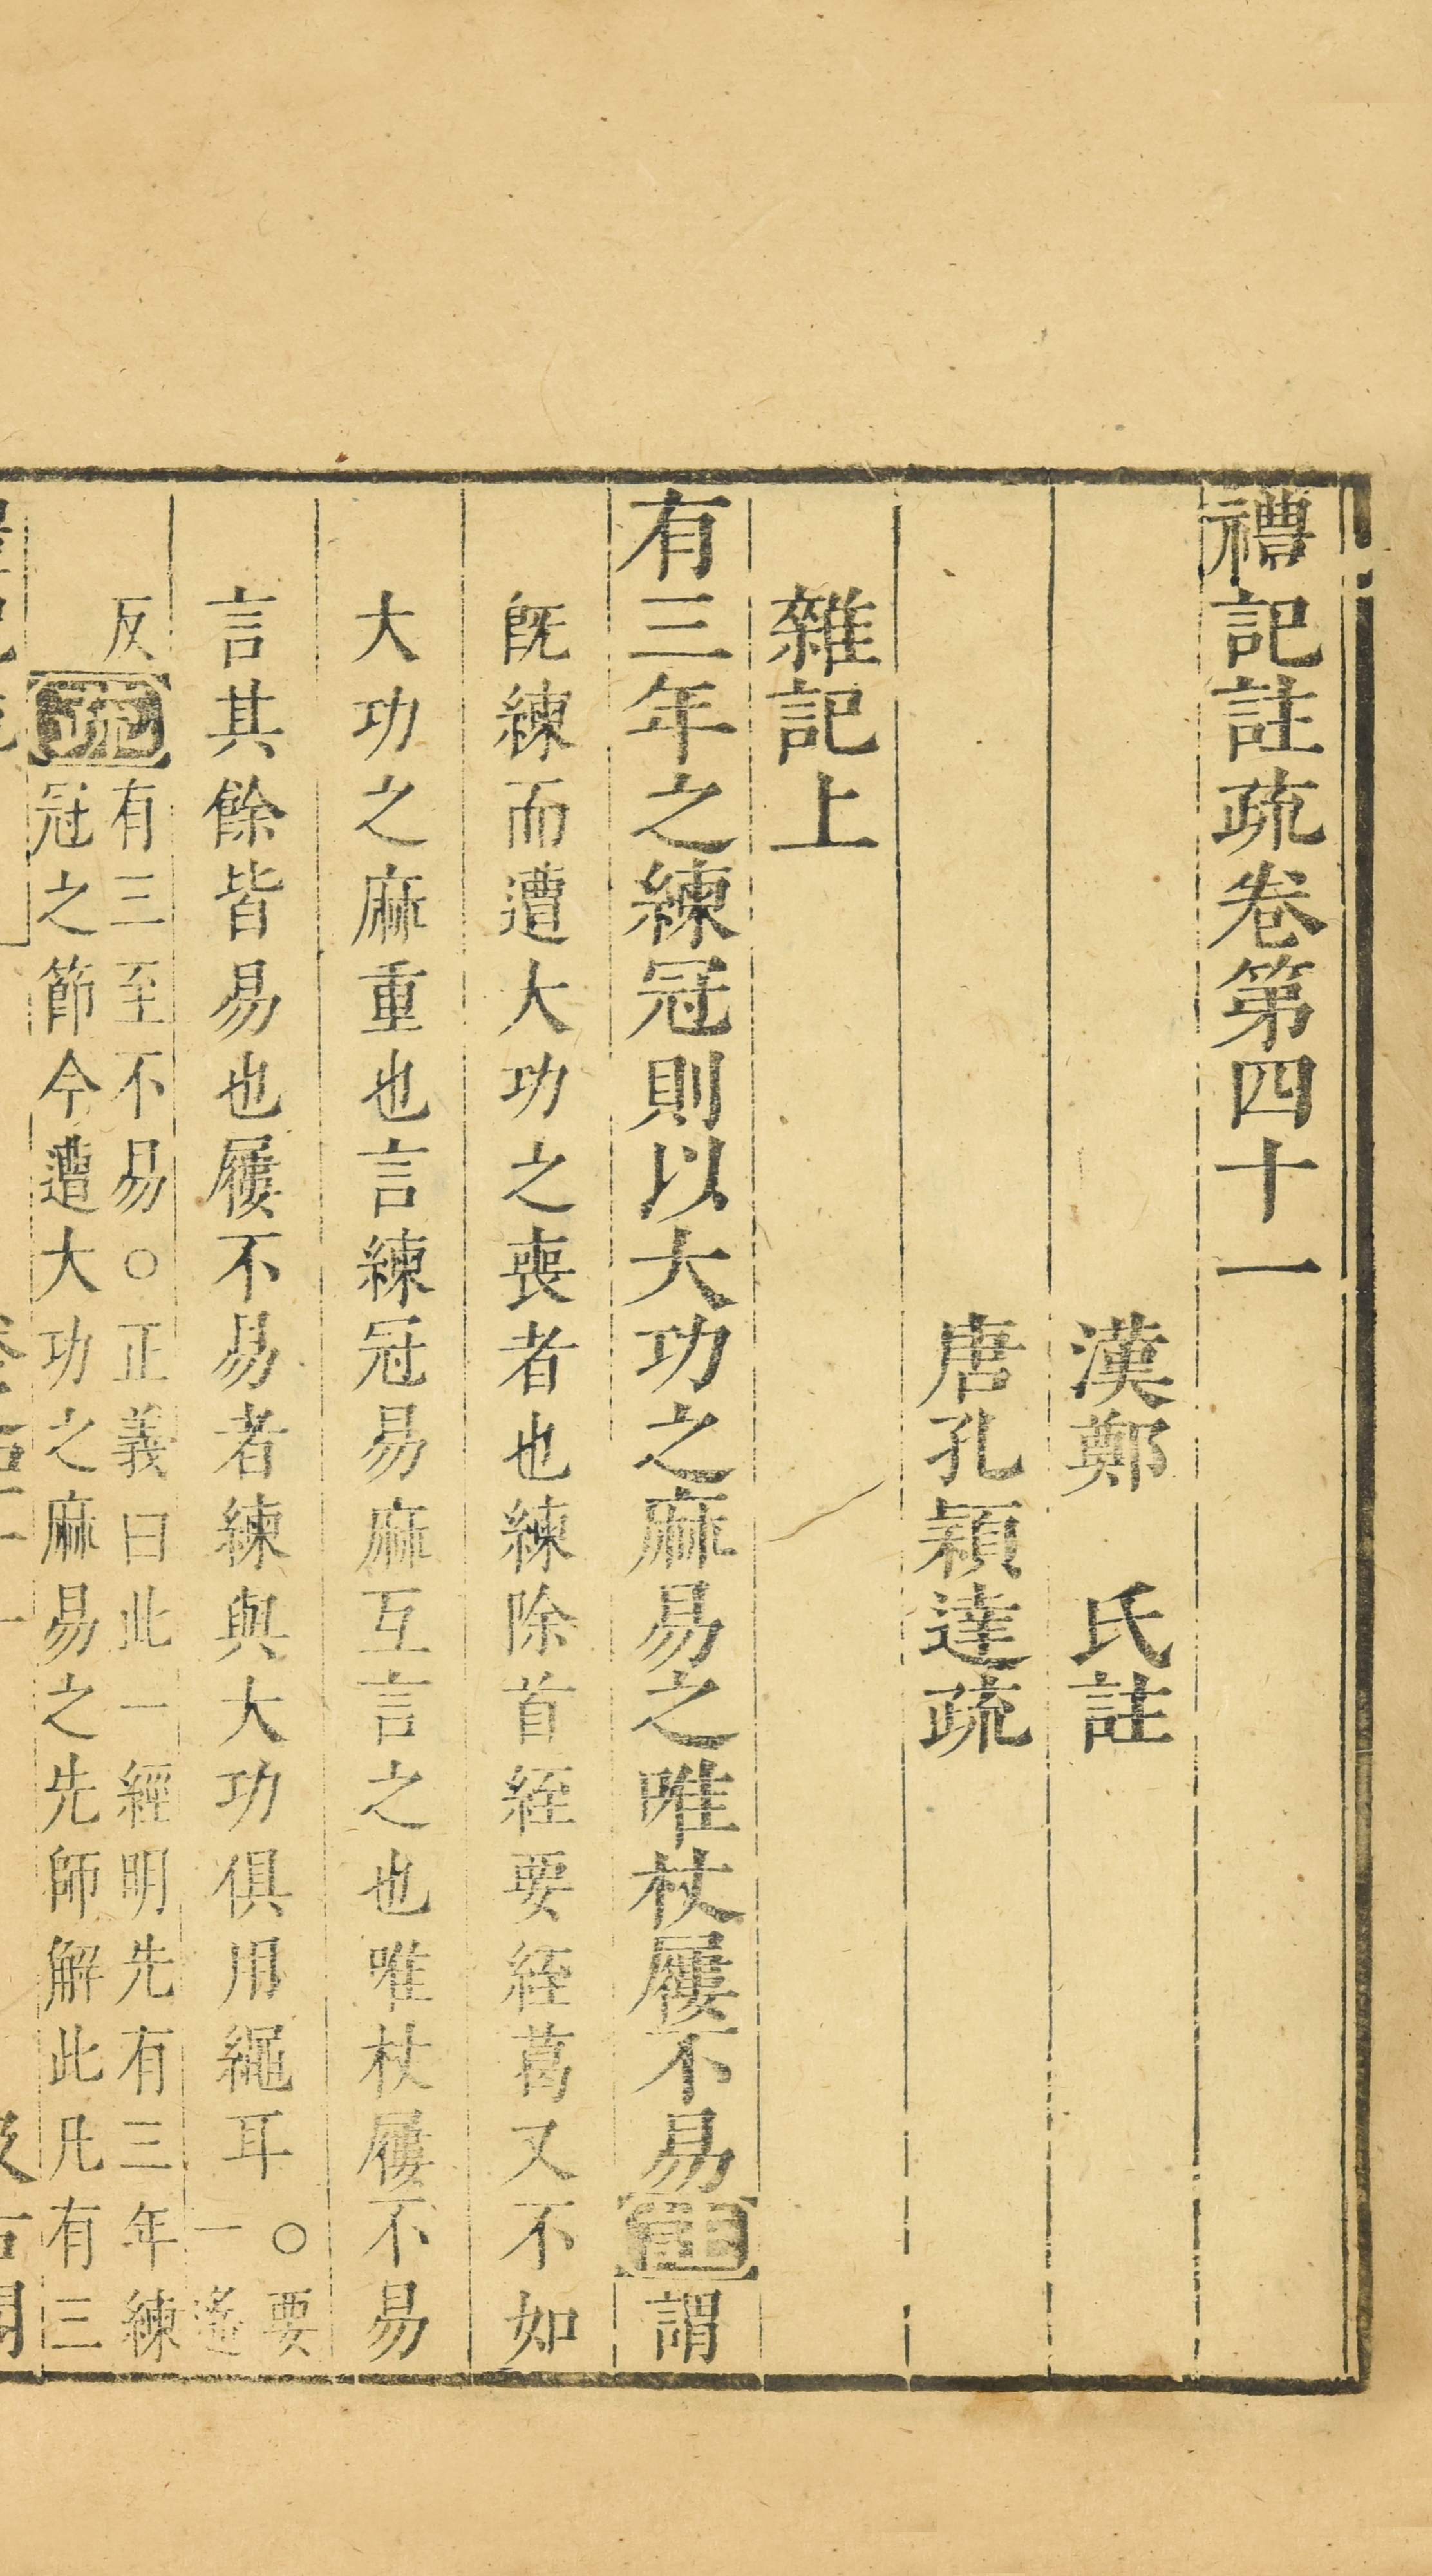 禮記註疏卷第四十一
漢鄭　氏註
唐孔穎達疏
雜記上
有三年之練冠則以大功之麻易之唯杖屨不易註謂
旣練而遭大功之喪者也練除首絰要絰葛又不如
大功之麻重也言練冠易麻互言之也唯杖屨不易
言其餘皆易也屨不易者練與大功俱用繩耳○要
一遙
反疏有三至不易○正義曰此一經明先有三年練
冠之節今遭大功之麻易之先師解此凡有三